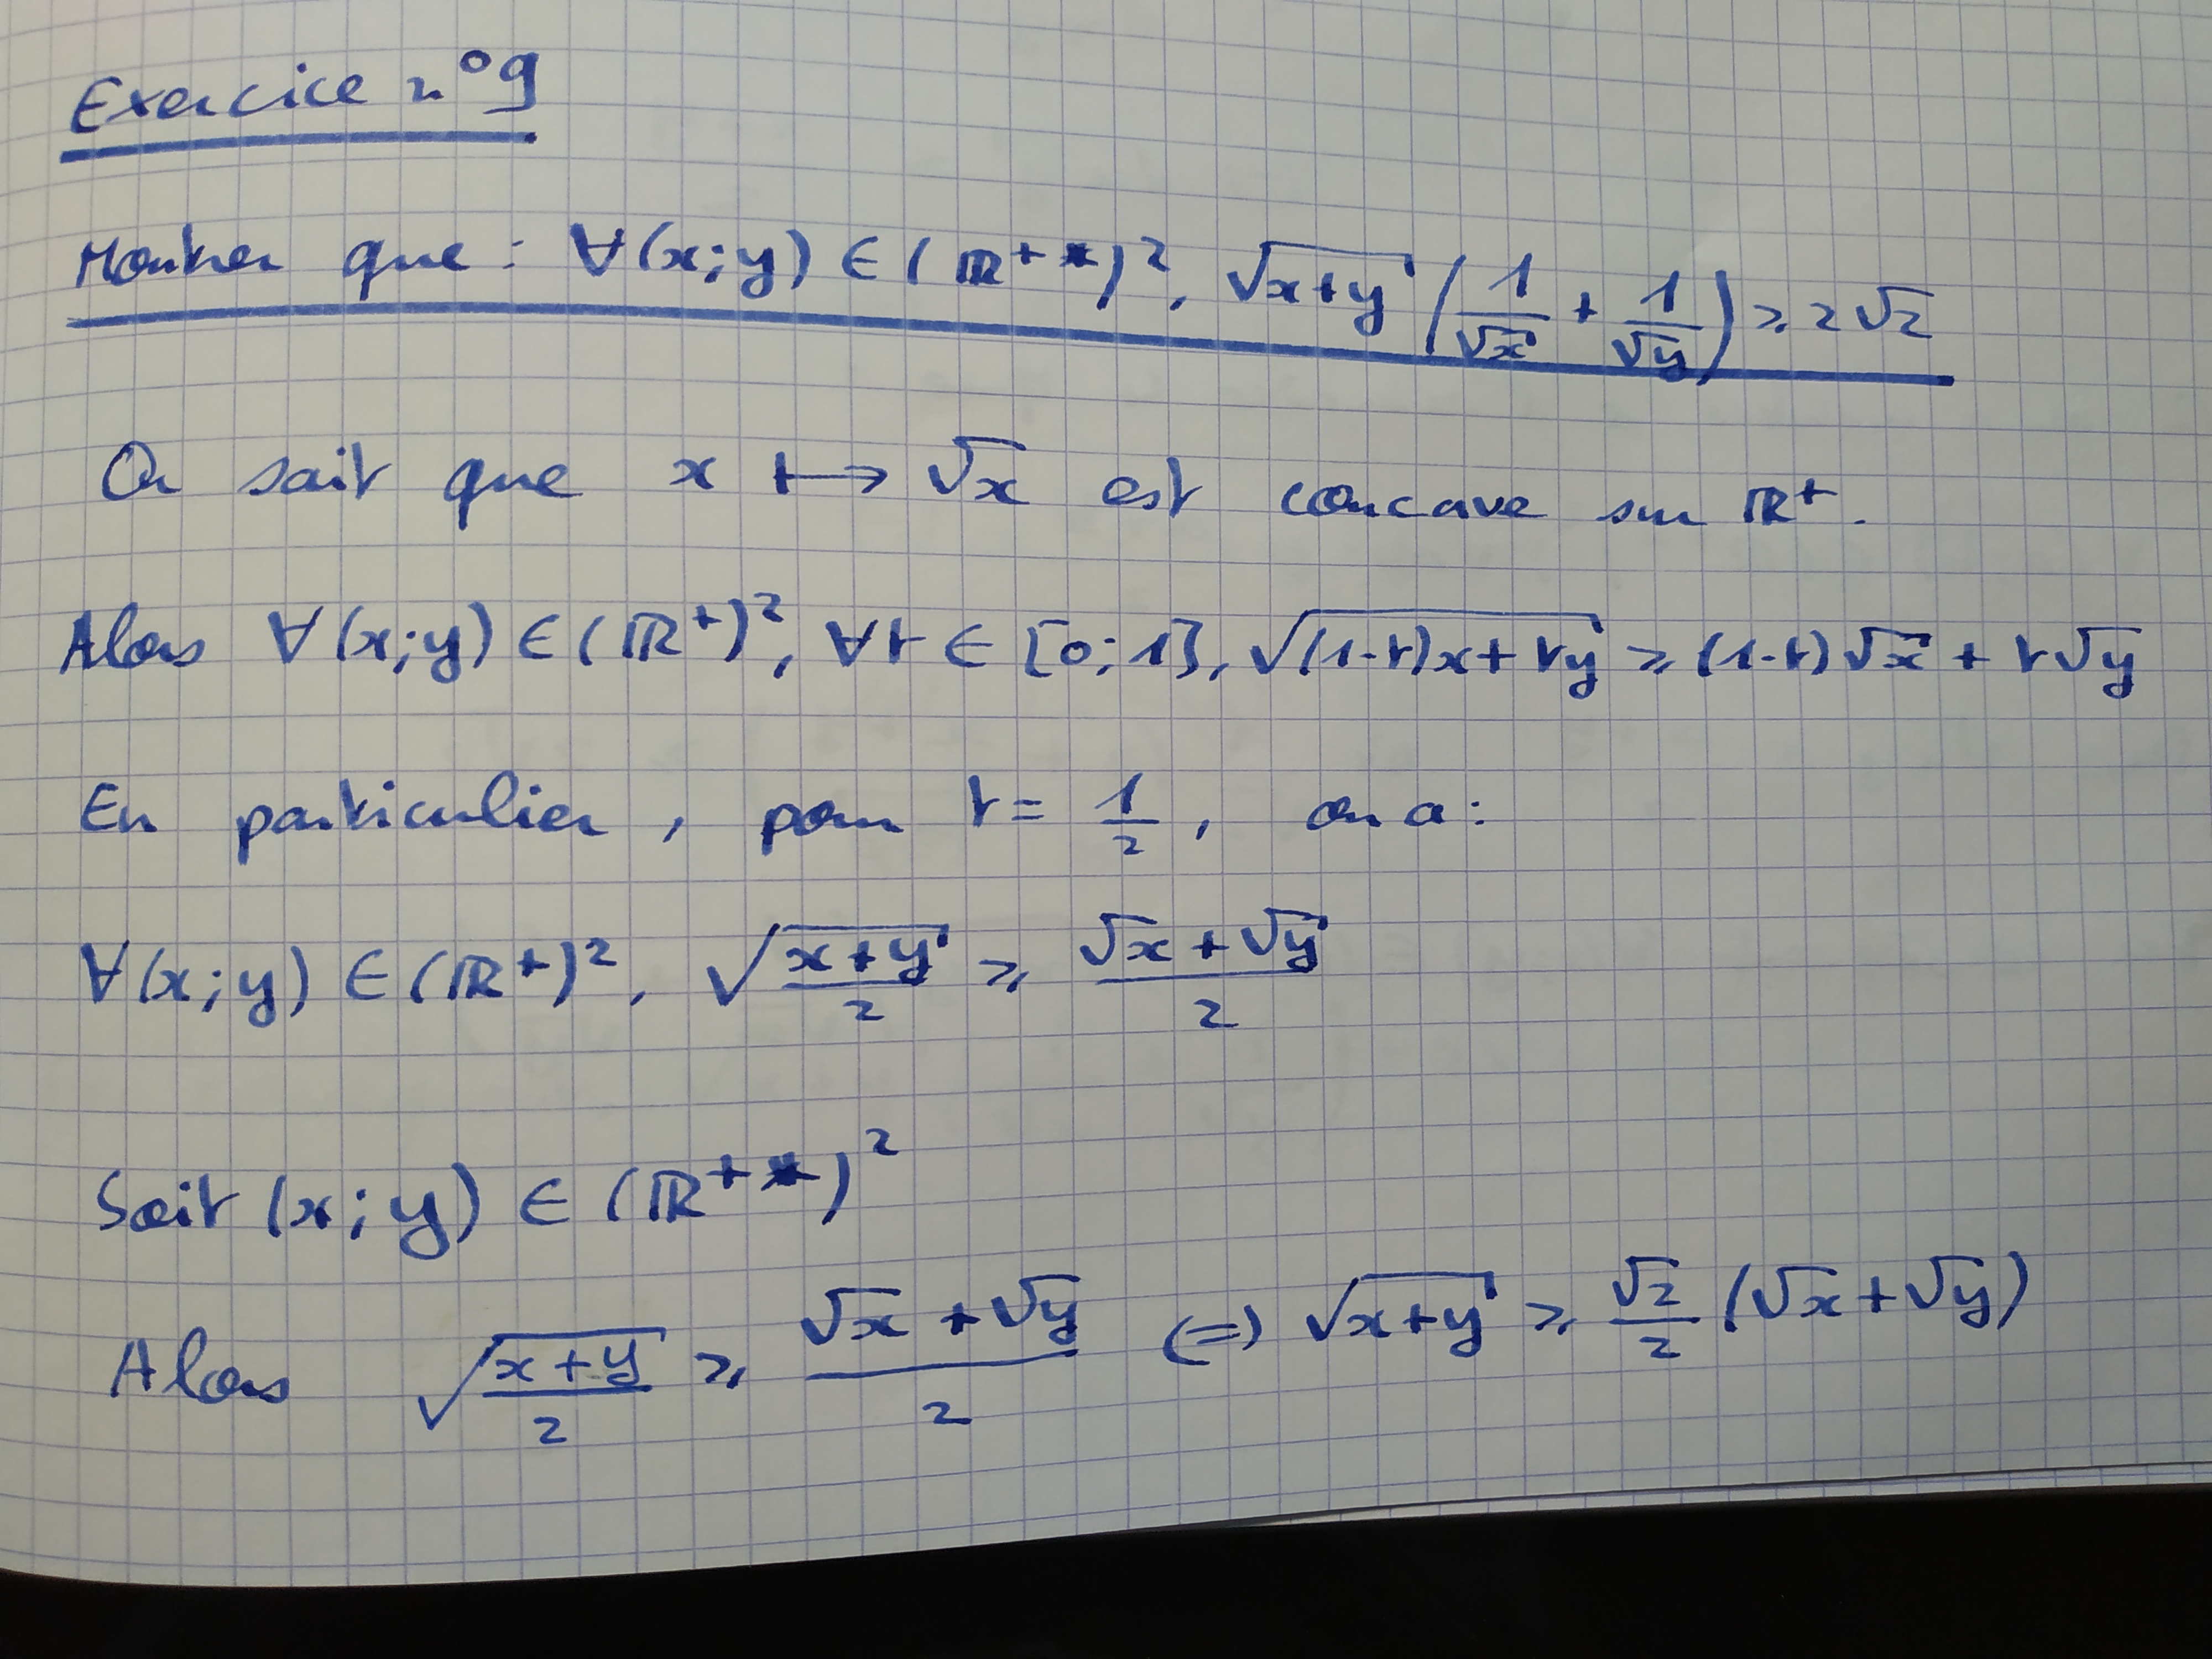 Exercice n°9
Montrer que : ∀(x;y) ∈ (ℝ⁺*)², √(x+y) (1/√x + 1/√y) ≥ 2√2
On sait que x ⟼ √x est concave sur ℝ⁺.
Alors ∀(x;y) ∈ (ℝ⁺)², ∀t ∈ [0;1], √((1-t)x+ty) ≥ (1-t)√x + t√y
En particulier, pour t = 1/2, on a :
∀(x;y) ∈ (ℝ⁺)², √((x+y)/2) ≥ (√x + √y)/2
Soit (x;y) ∈ (ℝ⁺*)²
Alors √((x+y)/2) ≥ (√x + √y)/2 (=) √(x+y) ≥ √2/2 (√x+√y)